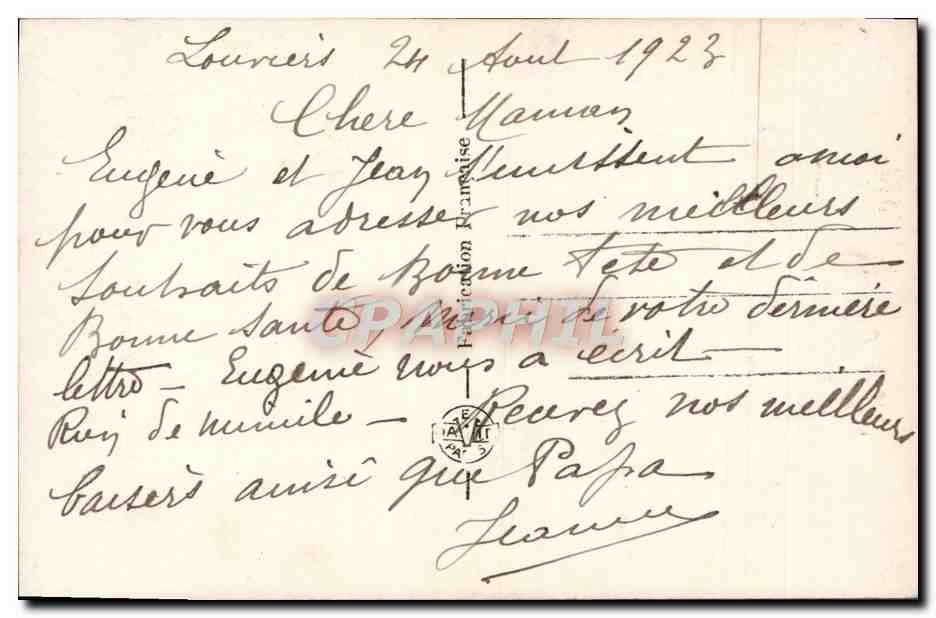 Louviers 24 Aout 1923
Chere Maman
Eugenie et Jean s'unissent a moi
pour vous adresser nos meilleurs
souhaits de Bonne fete et de
Bonne Santé, Merci de votre dernière
lettre – Eugenie nous a écrit –
Rien de – Recevez nos meilleurs
baisers ainsi que Papa
Jeanne
Fabrication Française
CPAPHIL
PARIS